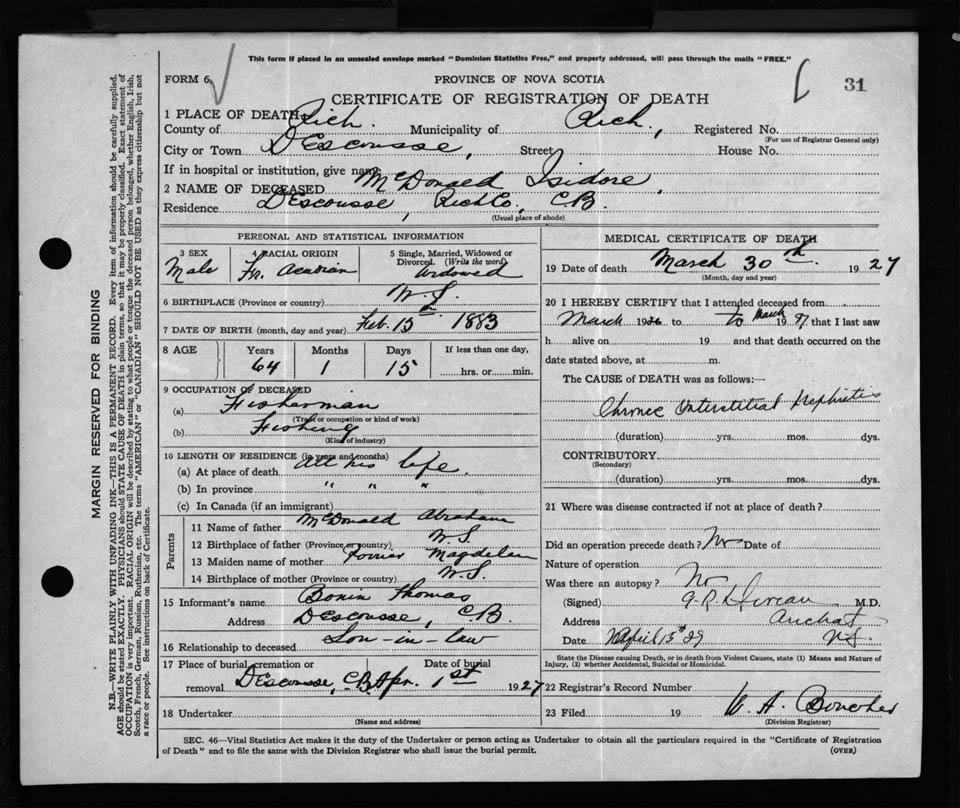 This form if placed in an unsealed envelope marked "Dominion Statistics Free," and properly addressed, will pass through the mails "FREE."
FORM 6
PROVINCE OF NOVA SCOTIA
31
CERTIFICATE OF REGISTRATION OF DEATH
1 PLACE OF DEATH:
County of Rich. Municipality of Rich., Registered No.
(For use of Registrar General only)
City or Town DEscousse, Street House No.
If in hospital or institution, give name
2 NAME OF DECEASED McDonald Isidore,
Residence DEscousse, Rich Co, CB.
(Usual place of abode)
PERSONAL AND STATISTICAL INFORMATION
3 SEX 4 RACIAL ORIGIN 5 Single, Married, Widowed or Divorced. (Write the word)
Male Fr. Acadian Widowed
6 BIRTHPLACE (Province or country) N.S.
7 DATE OF BIRTH (month, day and year) Feb. 15 1883
8 AGE Years Months Days If less than one day,
64 1 15 hrs. or min.
9 OCCUPATION OF DECEASED
(a) Fisherman
(Trade or occupation or kind of work)
(b) Fishing
(Kind of industry)
10 LENGTH OF RESIDENCE (in years and months)
(a) At place of death All his life
(b) In province " " "
(c) In Canada (if an immigrant)
Parents
11 Name of father McDonald Abraham
12 Birthplace of father (Province or country) N.S.
13 Maiden name of mother Magdelen
14 Birthplace of mother (Province or country) N.S.
15 Informant's name Bonin Thomas
Address DEscousse, C.B
16 Relationship to deceased Son-in-law
17 Place of burial, cremation or Date of burial
removal DEscousse, CB Apr. 1st 1927
18 Undertaker
(Name and address)
MEDICAL CERTIFICATE OF DEATH
19 Date of death March 30th 1927
(Month, day and year)
20 I HEREBY CERTIFY that I attended deceased from
March 1926 to To March 1927 that I last saw
h alive on 19 and that death occurred on the
date stated above, at m.
The CAUSE of DEATH was as follows:—
Chronic Interstitial Nephritis
(duration) yrs. mos. dys.
CONTRIBUTORY
(Secondary)
(duration) yrs. mos. dys.
21 Where was disease contracted if not at place of death?
Did an operation precede death? No Date of
Nature of operation
Was there an autopsy? No
(Signed) M.D.
Address Arichat
Date April 13th 29 N.S.
State the Disease causing Death, or in death from Violent Causes, state (1) Means and Nature of
Injury, (2) whether Accidental, Suicidal or Homicidal.
22 Registrar's Record Number
23 Filed 19 W. A. Boucher
(Division Registrar)
SEC. 46—Vital Statistics Act makes it the duty of the Undertaker or person acting as Undertaker to obtain all the particulars required in the "Certificate of Registration
of Death" and to file the same with the Division Registrar who shall issue the burial permit. (OVER)
MARGIN RESERVED FOR BINDING
N.B.—WRITE PLAINLY WITH UNFADING INK—THIS IS A PERMANENT RECORD. Every item of information should be carefully supplied.
AGE should be stated EXACTLY. PHYSICIANS should STATE CAUSE OF DEATH in plain terms, so that it may be properly classified. Exact statement of
OCCUPATION is very important. RACIAL ORIGIN will be described by stating to what people or tongue the deceased person belonged, whether English, Irish,
Scotch, French, German, Russian, Ruthenian, etc. The terms "AMERICAN" or "CANADIAN" SHOULD NOT BE USED as they express citizenship but not
a race or people. See instructions on back of Certificate.